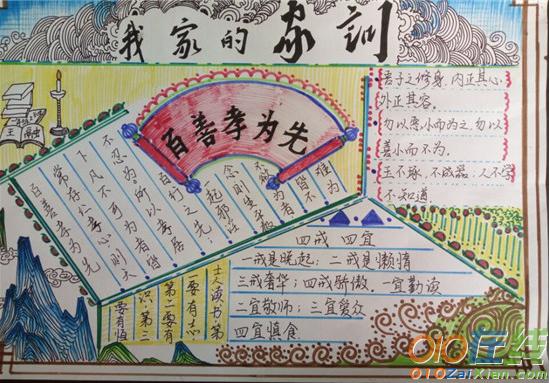 我家的家训
百善孝为先
君子之修身,内正其心,
外正其容。
勿以恶小而为之,勿以
善小而不为。
玉不琢,不成器,人不学
不知道
百善孝为先
常存仁孝心,则天
下凡不可为者,皆
不忍为。所以孝居
百行之先;一
起邪淫
念则生平极
不欲为者
皆不难为
四戒 四宜
一戒是晚起;二戒是懒惰
三戒奢华;四戒骄傲,一宜勤读
二宜敬师;三宜爱众
四宜慎食
士人读书第
一要有志
第二要有
识第三
要有恒
010在线
010ZaiXian.com